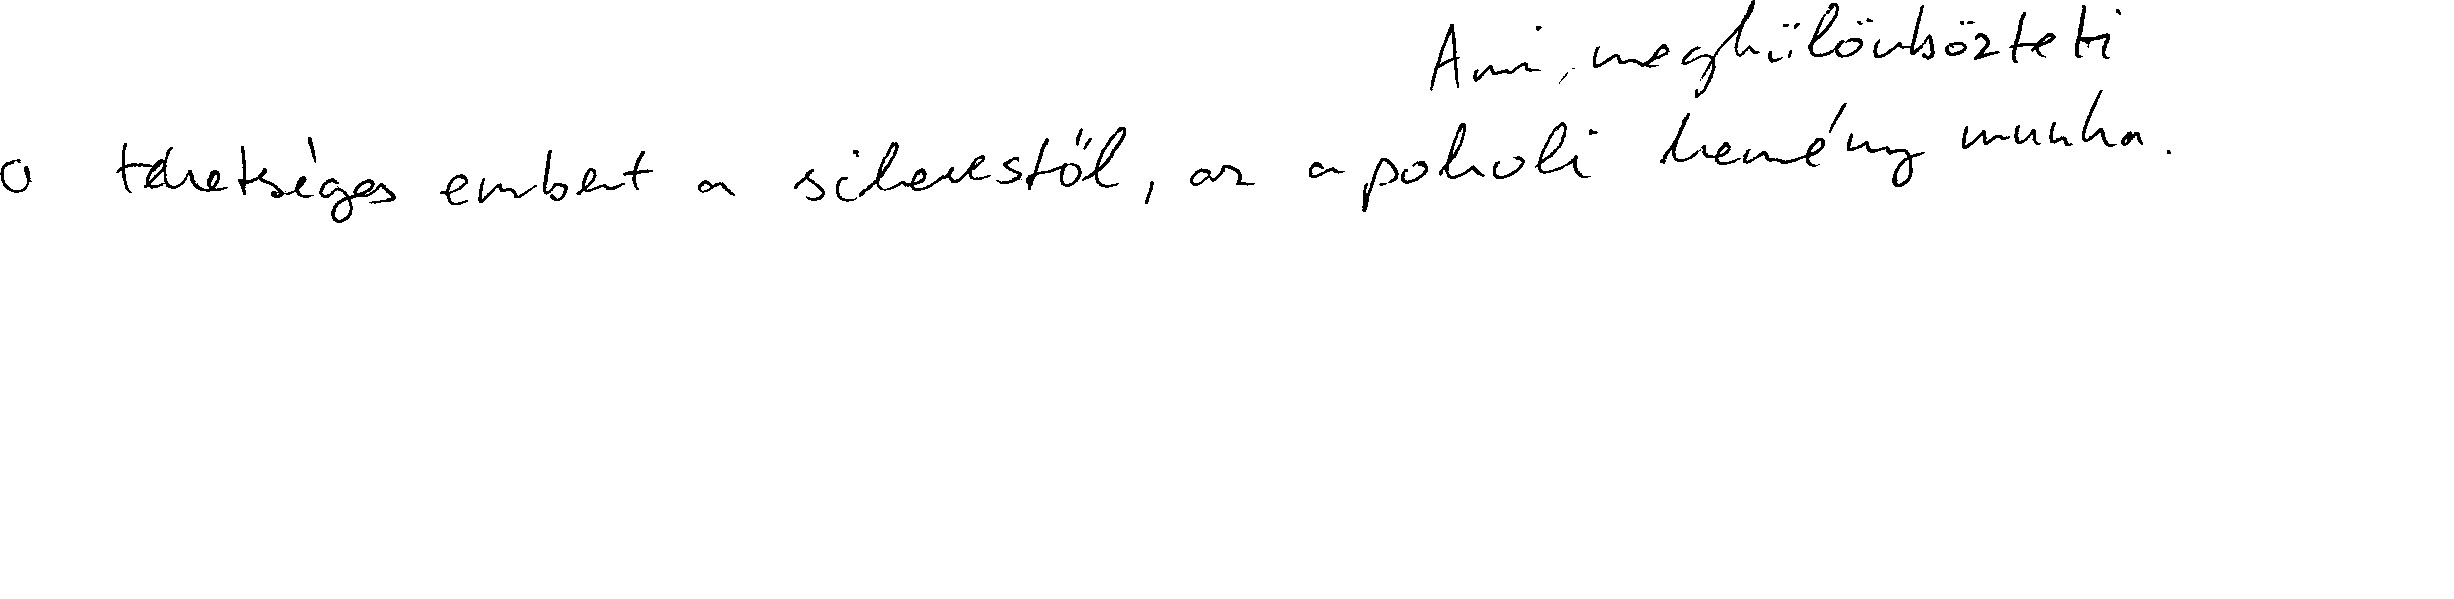 Ami, megkülönbözteti
a tehetséges embert a sikerestől, az a pokoli kemény munka.